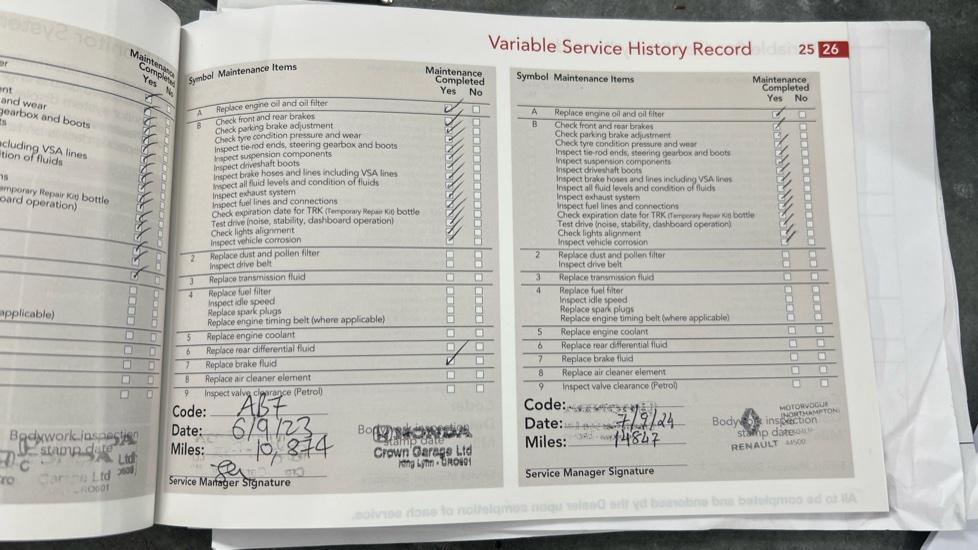 Maintenance
Completed
Yes No
and wear
gearbox and boots
cluding VSA lines
tion of fluids
emporary Repair Kit) bottle
oard operation)
applicable)
Bodywork inspection
stamp date
Ltd
Variable Service History Record 25 26
Symbol Maintenance Items
Maintenance
Completed
Yes No
A Replace engine oil and oil filter
B Check front and rear brakes
Check parking brake adjustment
Check tyre condition pressure and wear
Inspect tie-rod ends, steering gearbox and boots
Inspect suspension components
Inspect driveshaft boots
Inspect brake hoses and lines including VSA lines
Inspect all fluid levels and condition of fluids
Inspect exhaust system
Inspect fuel lines and connections
Check expiration date for TRK (Temporary Repair Kit) bottle
Test drive (noise, stability, dashboard operation)
Check lights alignment
Inspect vehicle corrosion
2 Replace dust and pollen filter
Inspect drive belt
3 Replace transmission fluid
4 Replace fuel filter
Inspect idle speed
Replace spark plugs
Replace engine timing belt (where applicable)
5 Replace engine coolant
6 Replace rear differential fluid
7 Replace brake fluid
8 Replace air cleaner element
9 Inspect valve clearance (Petrol)
Code: AB7
Date: 6/9/23
Miles: 10,874
Service Manager Signature
HONDA
stamp date
Crown Garage Ltd
King Lynn
Symbol Maintenance Items
Maintenance
Completed
Yes No
A Replace engine oil and oil filter
B Check front and rear brakes
Check parking brake adjustment
Check tyre condition pressure and wear
Inspect tie-rod ends, steering gearbox and boots
Inspect suspension components
Inspect driveshaft boots
Inspect brake hoses and lines including VSA lines
Inspect all fluid levels and condition of fluids
Inspect exhaust system
Inspect fuel lines and connections
Check expiration date for TRK (Temporary Repair Kit) bottle
Test drive (noise, stability, dashboard operation)
Check lights alignment
Inspect vehicle corrosion
2 Replace dust and pollen filter
Inspect drive belt
3 Replace transmission fluid
4 Replace fuel filter
Inspect idle speed
Replace spark plugs
Replace engine timing belt (where applicable)
5 Replace engine coolant
6 Replace rear differential fluid
7 Replace brake fluid
8 Replace air cleaner element
9 Inspect valve clearance (Petrol)
Code:
Date: 7/9/24
Miles: 14827
Service Manager Signature
MOTORVOGUE
(NORTHAMPTON)
Body inspection
stamp date
RENAULT